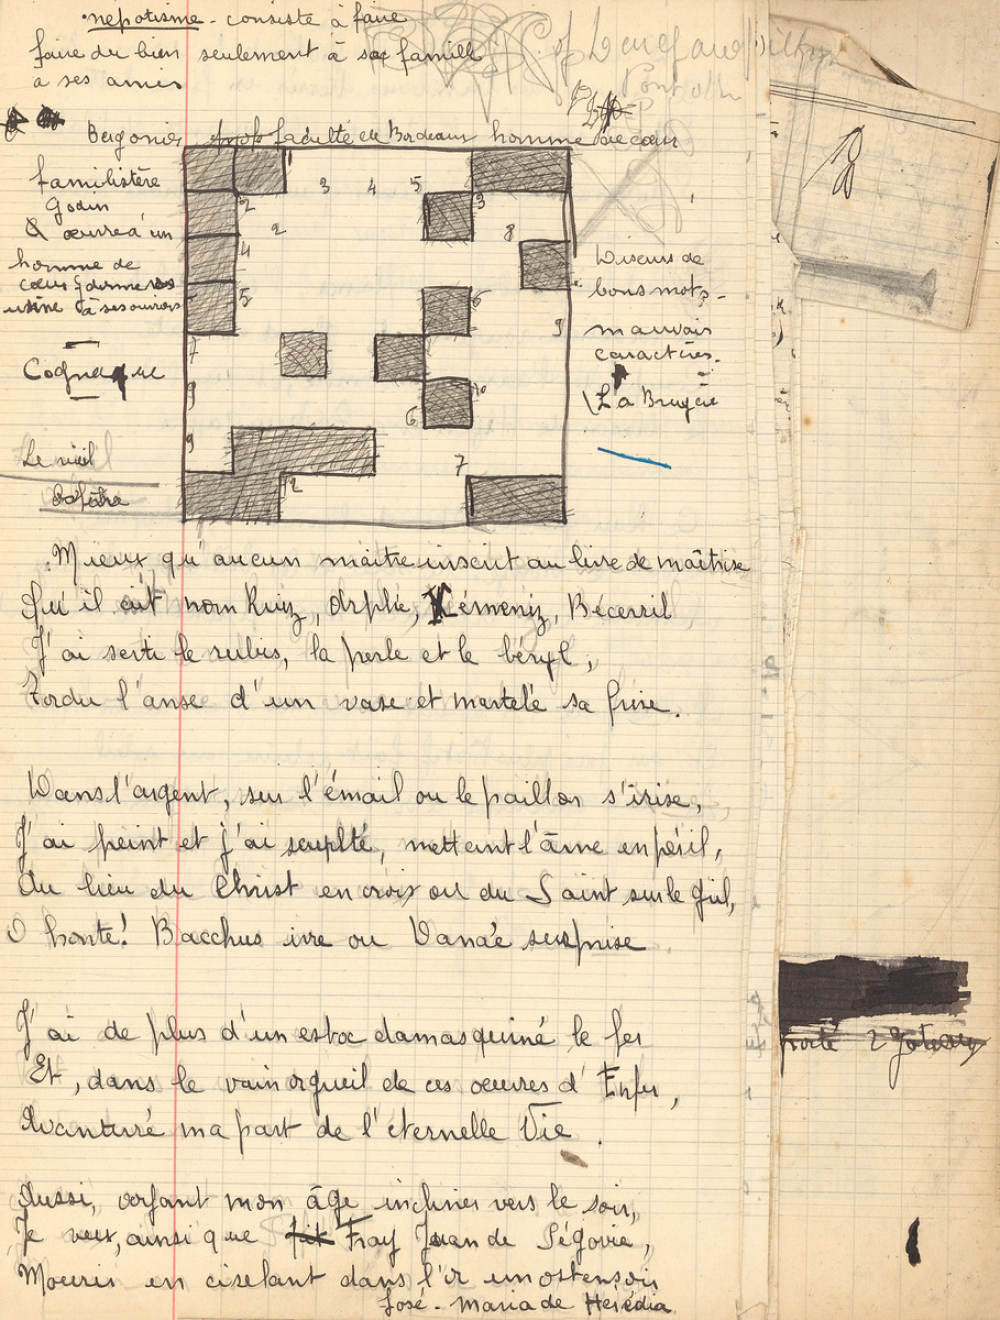 népotisme - consiste à faire
faire du bien seulement à sa famille
a ses amis
Begonies prof faculté de Bordeaux homme de cœur
familistère
Godin
& œuvre à un
homme de
cœur donne ses
usine à ses ouvriers
Cogna que
Le vieil
1
3 4 5
2 3
2 8
4
5 6
9
7
9 10
6
9
7
12
Diseurs de
bons mots -
mauvais
caractères.
La Bruyère
Mieux qu'aucun maître inscrit au livre de maîtrise
Qu'il ait nom Ruiz, Arphé, Xémeniz, Becerril
J'ai serti le rubis, la perle et le béryl,
Tordu l'anse d'un vase et martelé sa frise.
Dans l'argent, sur l'émail ou le paillon s'irise,
J'ai peint et j'ai sculpté, mettant l'âme en péril,
Au lieu du Christ en croix ou du Saint sur le gril,
O honte! Bacchus ivre ou Danaé surprise
J'ai de plus d'un estoc damasquiné le fer
Et, dans le vain orgueil de ces œuvres d'Enfer,
Avanturé ma part de l'éternelle Vie.
Aussi, voyant mon âge incliner vers le soir,
Je veux, ainsi que fit Fray Juan de Ségovie,
Mourir en ciselant dans l'or un ostensoir
José-Maria de Herédia
porté 2